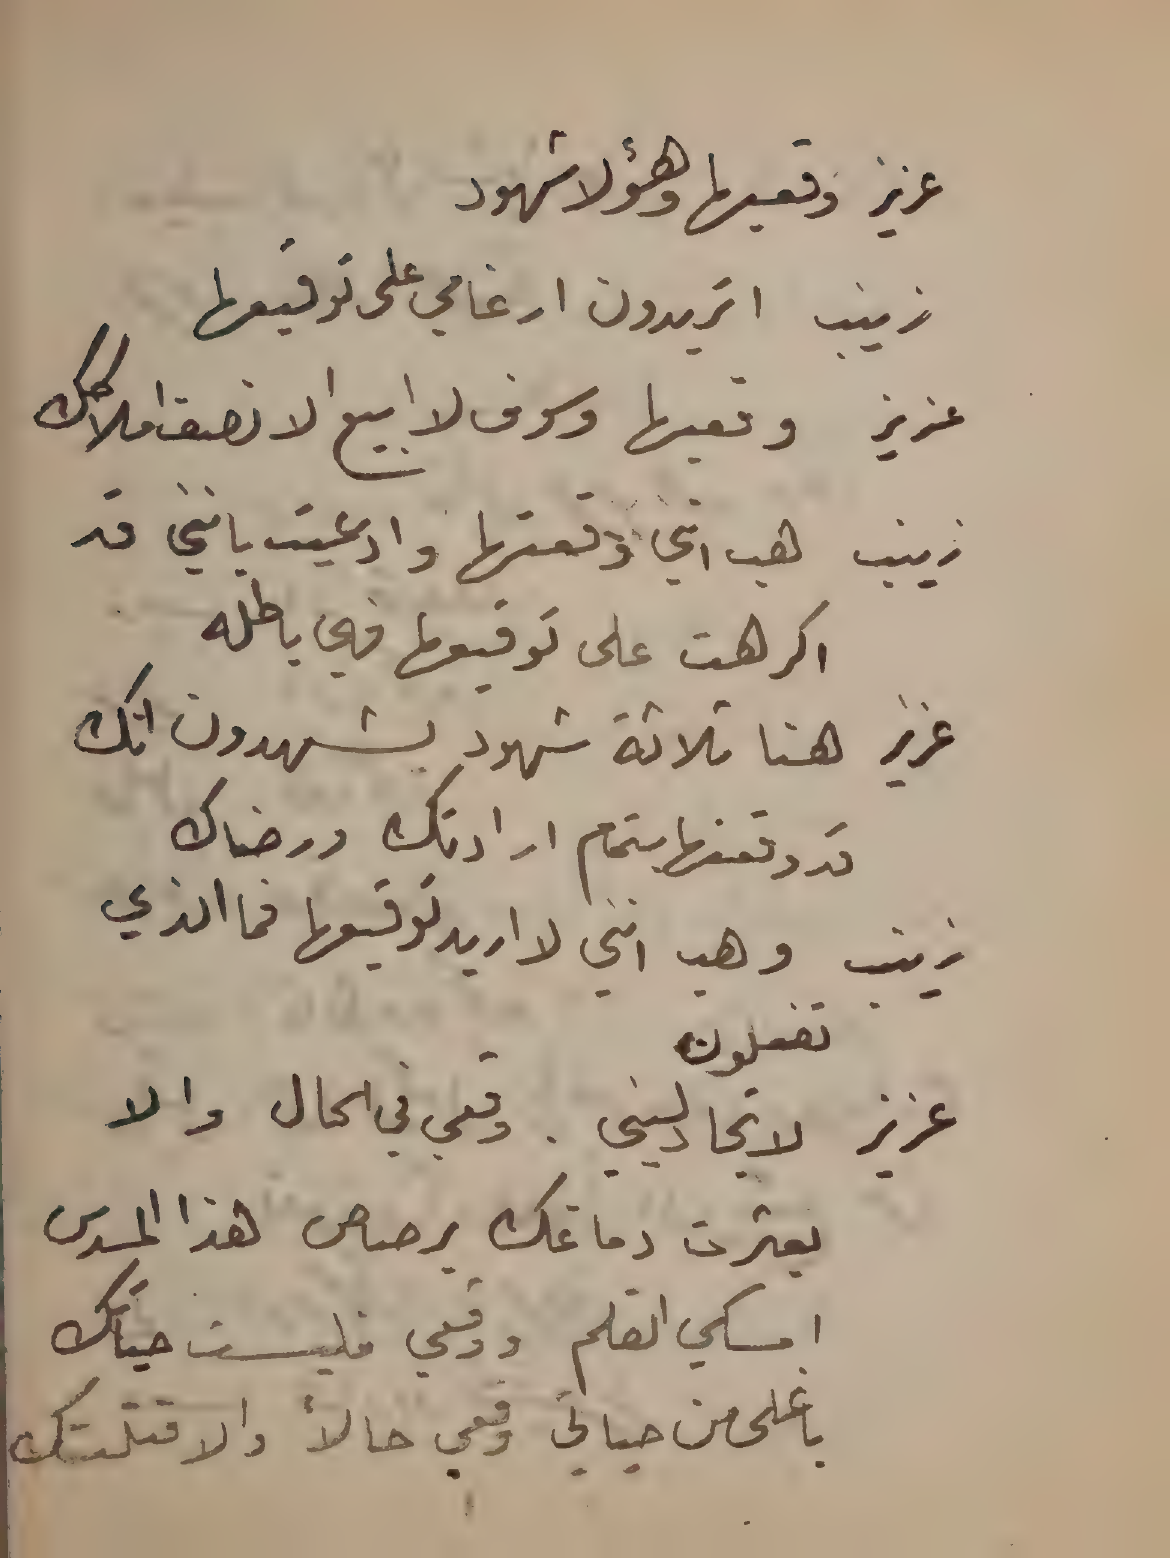 عزيز وقعيها وهؤلا شهود
زينب اتريدون ارغامي على توقيعها
عزيز وقعيها وسوف لا ابيع الا نصف املاكك
زينب هب انني وقعتها وادعيت بانني قد
اكرهت على توقيعها فهي باطله
عزيز هنا ثلاثة شهود يشهدون انك
قد وقعتها بتمام ارادتك ورضاك
زينب وهب انني لا اريد توقيعها فما الذي
تفعلون
عزيز لا تجادليني . وقعي في الحال والا
بعثرت دماغك برصاص هذا المسدس
امسكي القلم ووقعي فليست حياتك
باغلى من حياتي وقعي حالاً والا قتلتك